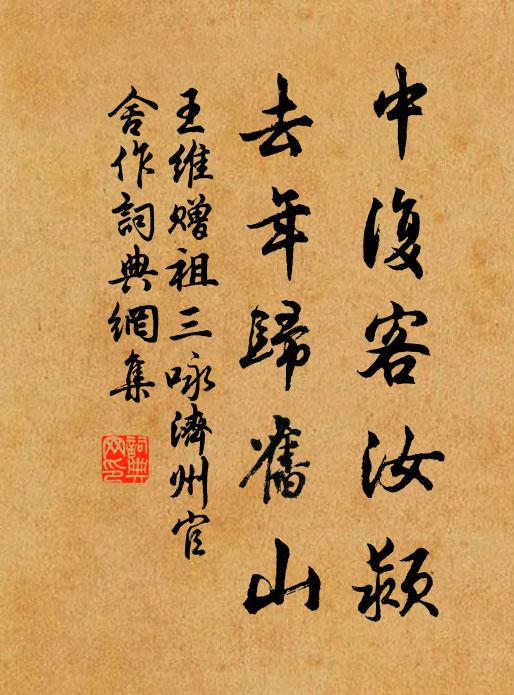 中復客汝潁
去年歸舊山
王維贈祖三咏濟州官
舍作詞典網集
詞典網印